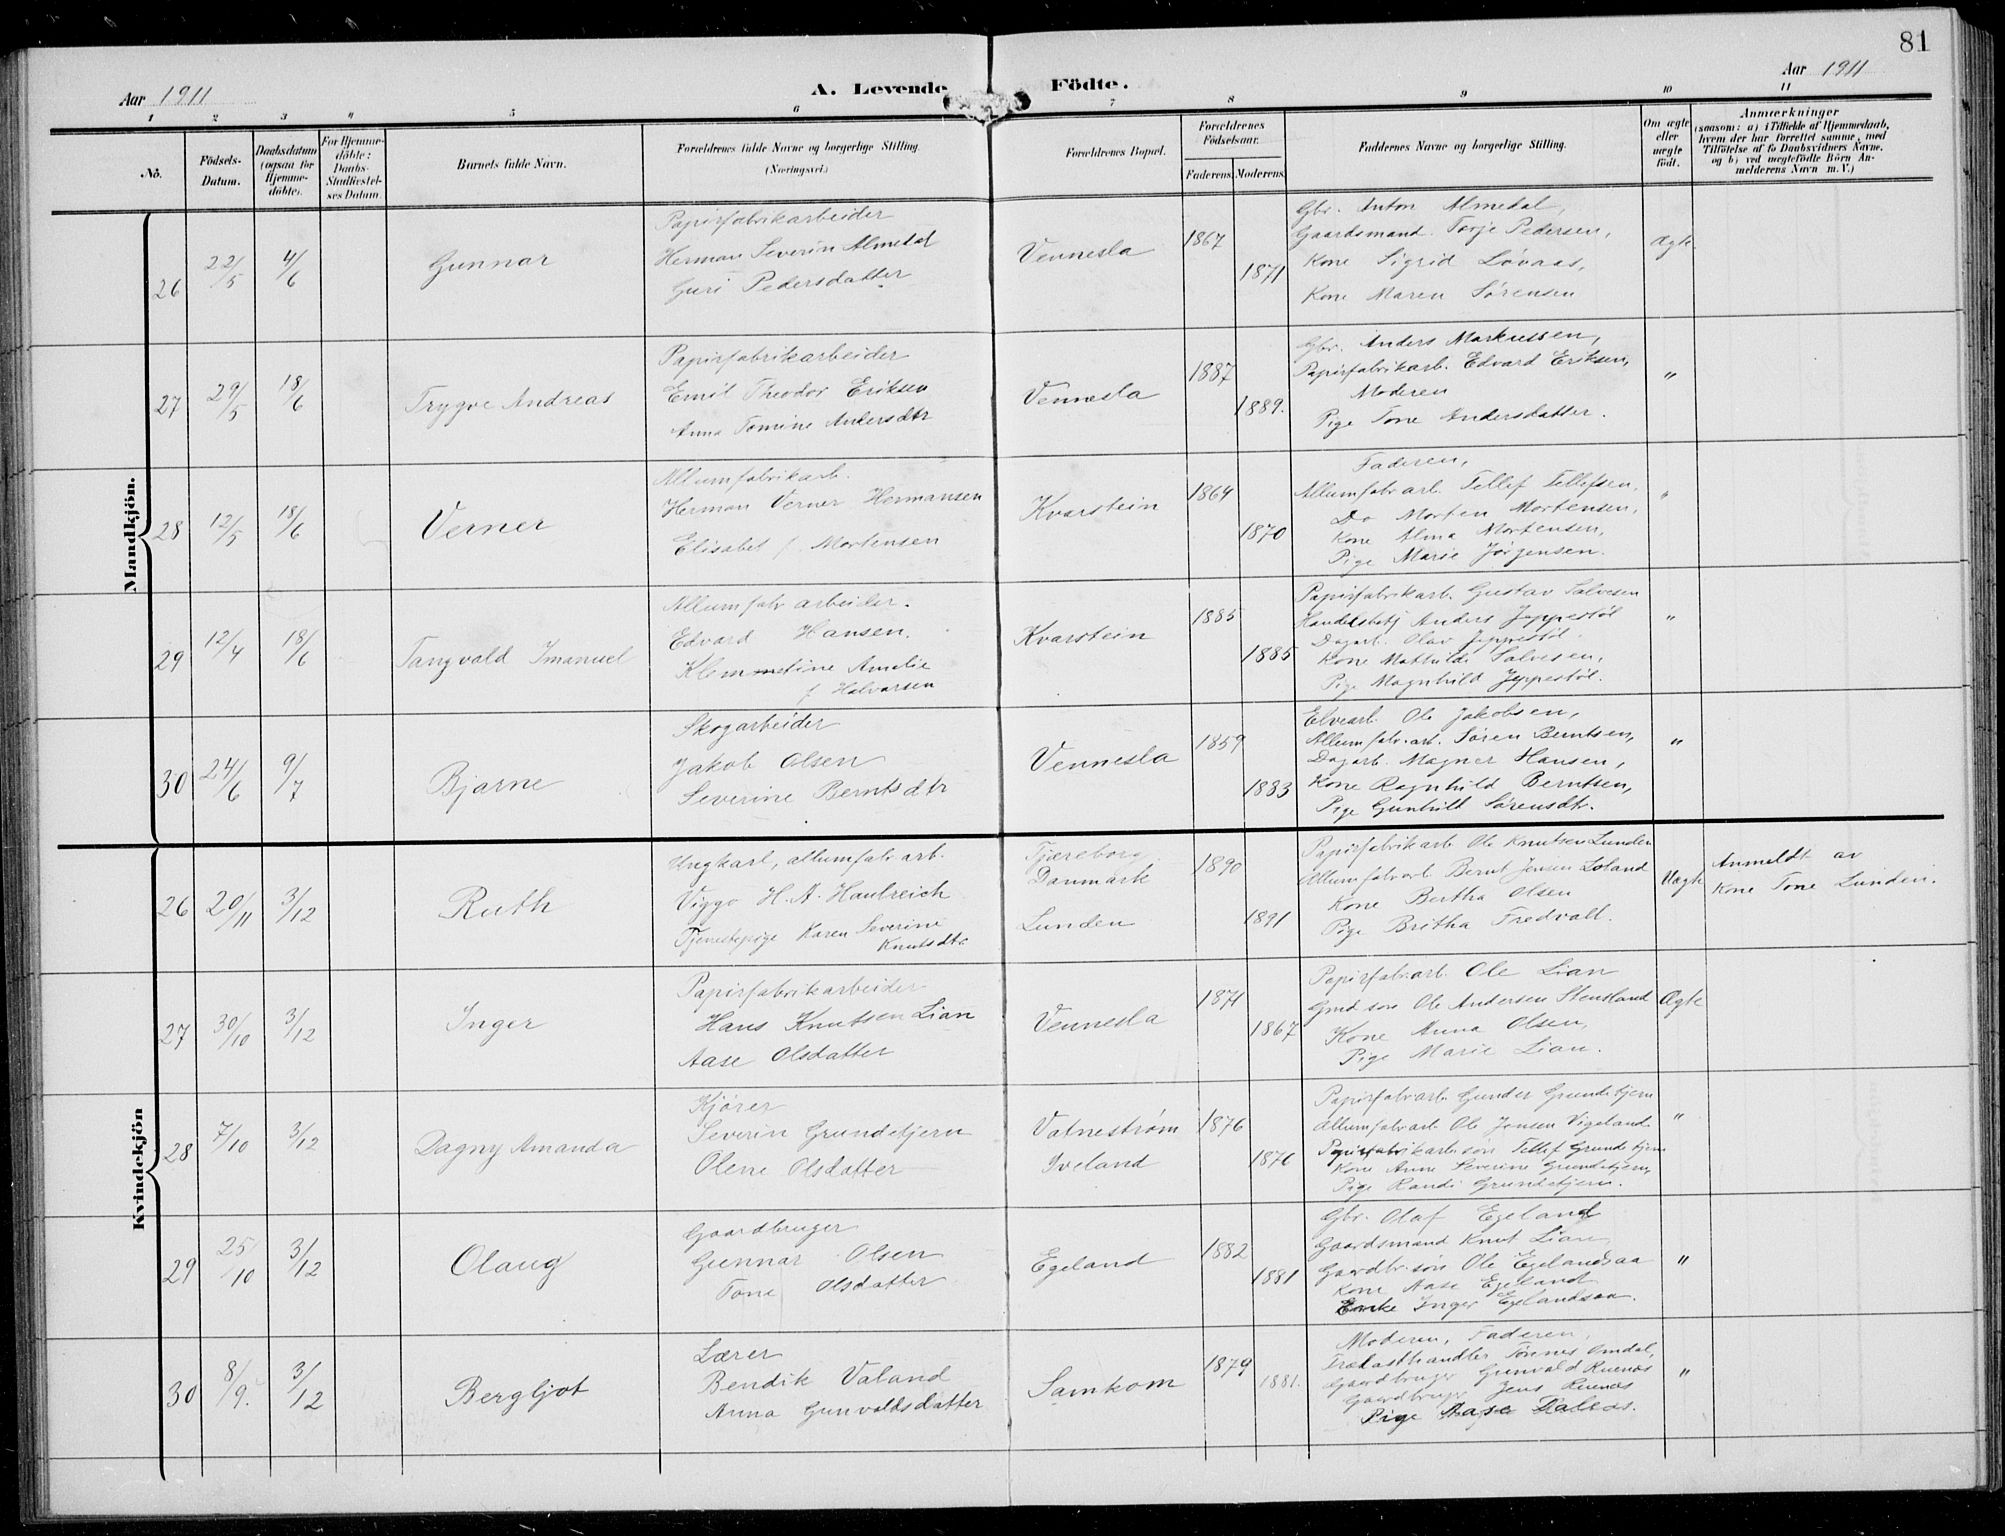 81
Aar 1911
A. Levende Födte.
Aar 1911
1 2 3 4 5 6 7 8 9 10 11
No.
Födsels-Datum.
Daabsdatum (ogsaa for Hjemmedöbte).
For Hjemmedöbte: Daabs-Stadfæstelses Datum.
Barnets fulde Navn.
Forældrenes fulde Navne og borgerlige Stilling. (Næringsvei.)
Forældrenes Bopæl.
Forældrenes Födselsaar.
Faderens. Moderens.
Faddernes Navne og borgerlige Stilling.
Om ægte eller uægte födt.
Anmærkninger (saasom: a) i Tilfælde af Hjemmedaab, hvem der har forrettet samme, med Tilföielse af to Daabsvidners Navne, og b) ved uægtefödte Börn Anmelderens Navn m. V.)
Mandkjön.
26 22/5 4/6 Gunnar
Papirfabrikarbeider
Herman Severin Almedal
Guri Pedersdatter
Vennesla 1867 1871
Gbr. Anton Almedal,
Gaardsmand Torje Pedersen,
Kone Sigrid Løvaas,
Kone Maren Sørensen
Ægte
27 29/5 18/6 Trygve Andreas
Papirfabrikarbeider
Emil Theodor Eriksen
Anna Tomine Andersdtr
Vennesla 1887 1889.
Gbr. Anders Markussen,
Papirfabrikarb. Edvard Eriksen,
Moderen
Pige Tone Andersdatter.
"
28 12/5 18/6 Verner
Allumfabrikarb.
Herman Verner Hermansen
Elisabet f. Mortensen
Kvarstein 1864 1870
Faderen,
Allumfabr arb. Tellef Tellefsen,
Do Morten Mortensen,
Kone Alma Mortensen,
Pige Marie Jørgensen.
"
29 12/4 18/6 Tangvald Imanuel
Allumfabr arbeider.
Edvard Hansen.
Klemmetine Amalie
f Halvorsen
Kvarstein 1885 1885
Papirfabrikarb. Gustav Salvesen
Handelsbetj Anders Jeppestøl
Dagarb. Olav Jeppestøl
Kone Mathilde Salvesen,
Pige Magnhild Jeppestøl.
"
30 24/6 9/7 Bjarne
Skogarbeider
Jakob Olsen
Severine Berntsdtr
Vennesla 1859 1883
Elvearb. Ole Jakobsen,
Allumfabr.arb. Søren Berntsen,
Dagarb. Magner Hansen,
Kone Ragnhild Berntsen,
Pige Gunhild Sørensdtr.
"
Kvindekjön
26 20/11 3/12 Ruth
Ungkarl, allumfabr arb.
Viggo H. A. Hautreich
Tjenestepige Karen Severine
Knutsdtr
Tjæreborg
Danmark
Lunden
1890 1891
Papirfabrikarb Ole Knutsen Lunden
Allumfabrarb Bernt Jensen Loland
Kone Bertha Olsen
Pige Britha Fredvall.
Uægte
Anmeldt av
Kone Tone Lunden.
27 30/10 3/12 Inger
Papirfabrikarbeider
Hans Knutsen Lian
Aase Olsdatter
Vennesla 1871 1867
Papirfabr.arb. Ole Lian
Grnd søn Ole Andersen Stensland
Kone Anna Olsen,
Pige Marie Lian.
Ægte
28 7/10 3/12 Dagny Amanda
Kjører
Severin Grundetjern
Olene Olsdatter
Vatnestrøm
Iveland
1876 1876
Papirfabr.arb Gunder Grundetjern
Allumfabr arb Ole Jonsen Vigeland
Papirfabrikarb.søn Tellef Grundetjern
Kone Anne Severine Grundetjern,
Pige Randi Grundetjern.
"
29 25/10 3/12 Olaug
Gaardbruger
Gunnar Olsen
Tone Olsdatter
Egeland 1882 1881
Gbr. Olaf Egeland
Gaardsmand Knut Lian,
Gaardbr.søn Ole Egelandsaa
Kone Aase Egeland
Enke Inger Egelandsaa.
"
30 8/9. 3/12 Bergljot
Lærer
Bendik Valand
Anna Gunvaldsdatter
Samkom 1879 1881.
Moderen, Faderen,
Trælasthandler Tønnes Omdal,
Gaardbruger Gunvald Ruenæs
Gaardbruger Jens Ruenæs
Pige Aase
"